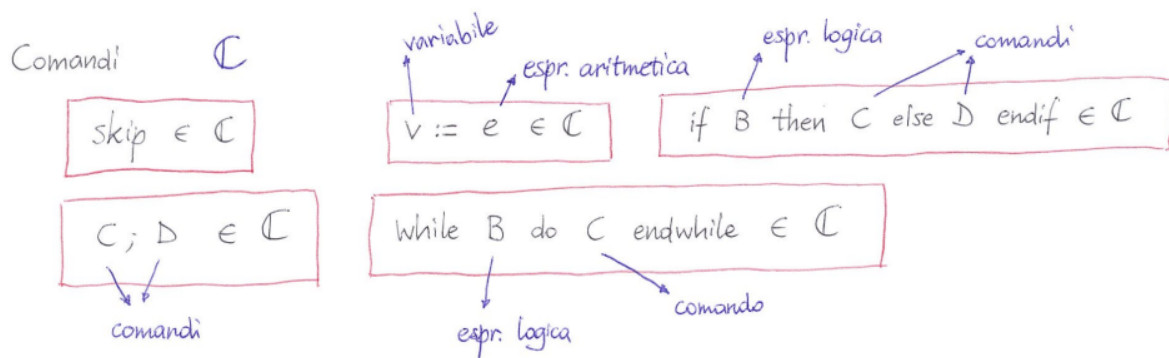 Comandi ℂ
variabile
espr. aritmetica
espr. logica
comandi
skip ∈ ℂ
v := e ∈ ℂ
if B then C else D endif ∈ ℂ
C ; D ∈ ℂ
while B do C endwhile ∈ ℂ
comandi
espr. logica
comando